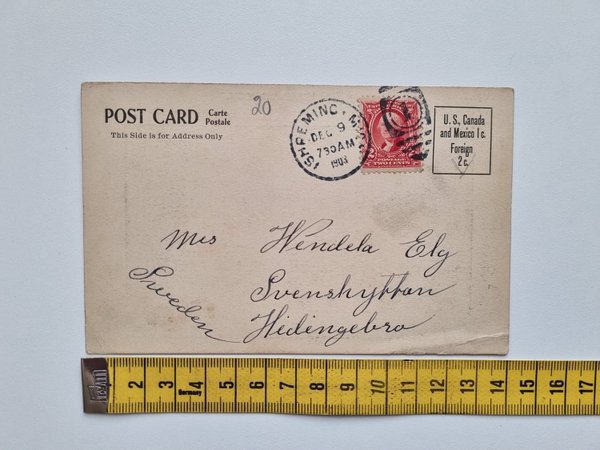 POST CARD
Carte Postale
20
This Side is for Address Only
ISHPEMING MICH
DEC 9
7 30 AM
1903
POSTAGE
TWO CENTS
U. S., Canada
and Mexico 1 c.
Foreign
2 c.
Mrs Wendela Elg
Svenshyttan
Hidingebro
Sweden
2 3 4 5 6 7 8 9 10 11 12 13 14 15 16 17
Germany